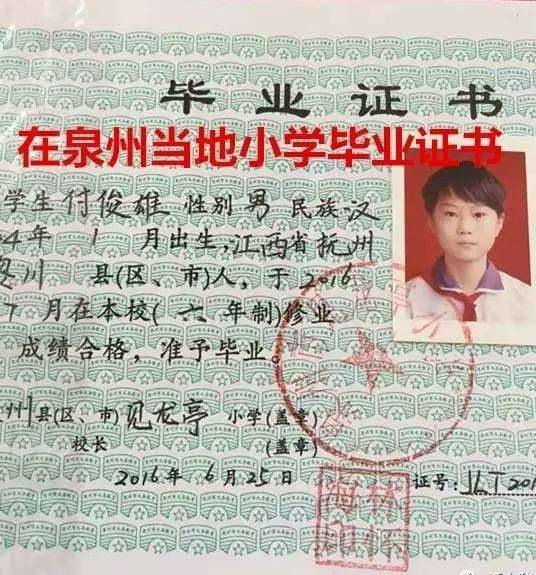 毕业证书
在泉州当地小学毕业证书
学生付俊雄 性别男 民族汉
4年 1 月出生,江西省抚州
川 县(区、市)人,于 2016
7 月在本校(六年制)修业
成绩合格,准予毕业。
州县(区、市)见龙亭 小学(盖章)
校长 (盖章)
2016年 6月 25日 证号:JLT201